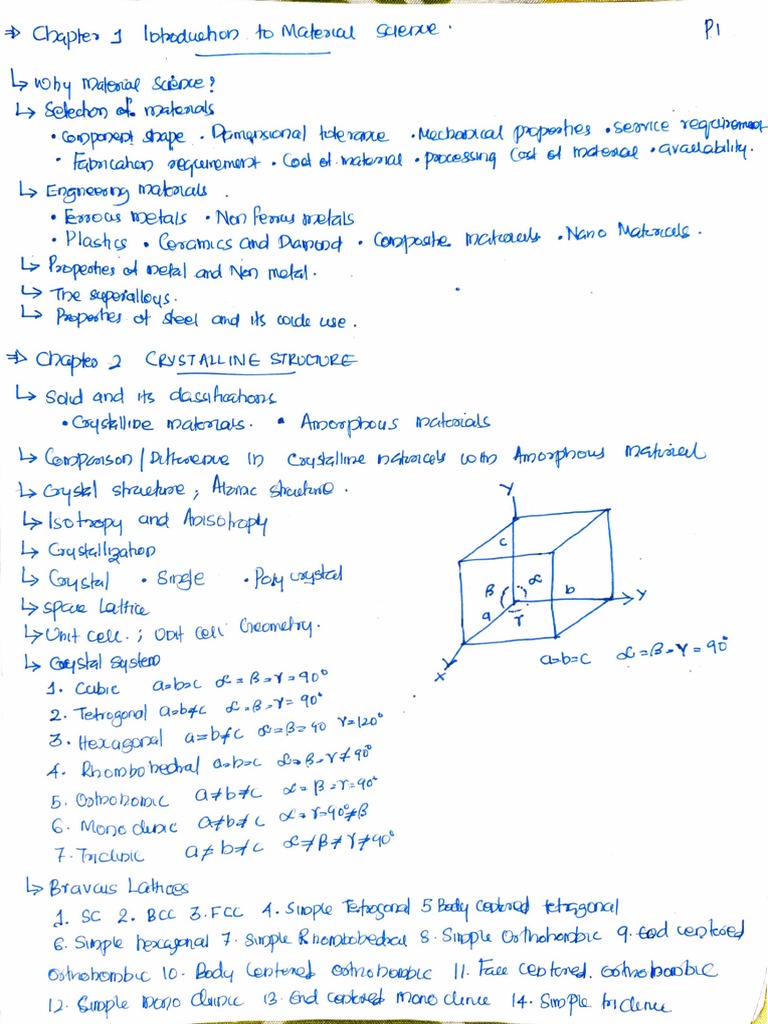 ⇒ Chapter 1 Introduction to Material Science. P1
↳ Why Material Science?
↳ Selection of materials
• Component shape • Dimensional tolerance • Mechanical properties • service requirement
• Fabrication requirement • Cost of material • processing cost of material • availability.
↳ Engineering materials.
• Ferrous metals • Non Ferrus metals
• Plastics • Ceramics and Diamond • Composite materials • Nano Materials.
↳ Properties of metal and Non metal.
↳ The superalloys.
↳ Properties of steel and its wide use.
⇒ Chapter 2 CRYSTALLINE STRUCTURE
↳ Solid and its classifications
• Crystalline materials. • Amorphous materials
↳ Comparison / Difference in Crystalline materials with Amorphous material
↳ Crystal structure, Atomic structure.
↳ Isotropy and Anisotropy
↳ Crystallization
↳ Crystal • Single • Poly crystal
↳ space lattice
↳ Unit cell. ; Unit cell Geometry.
Y
c
β α
a b Y
γ
X
a=b=c α=β=γ=90°
↳ Crystal System
1. Cubic a=b=c α=β=γ=90°
2. Tetrogonal a=b≠c α=β=γ=90°
3. Hexagonal a=b≠c α=β=90 γ=120°
4. Rhombohedral a=b=c α=β=γ≠90°
5. Orthohombic a≠b≠c α=β=γ=90°
6. Mono clinic a≠b≠c α=γ=90°≠β
7. Triclinic a≠b≠c α≠β≠γ≠90°
↳ Bravais Lattices
1. SC 2. BCC 3. FCC 4. Simple Tetrogonal 5 Body centered tetragonal
6. Simple hexagonal 7. Simple Rhombohedral 8. Simple Orthohombic 9. End centered
Orthohombic 10. Body Centered orthohombic 11. Face centered. orthohombic
12. Simple mono clinic 13. End centered mono clinic 14. Simple triclinic